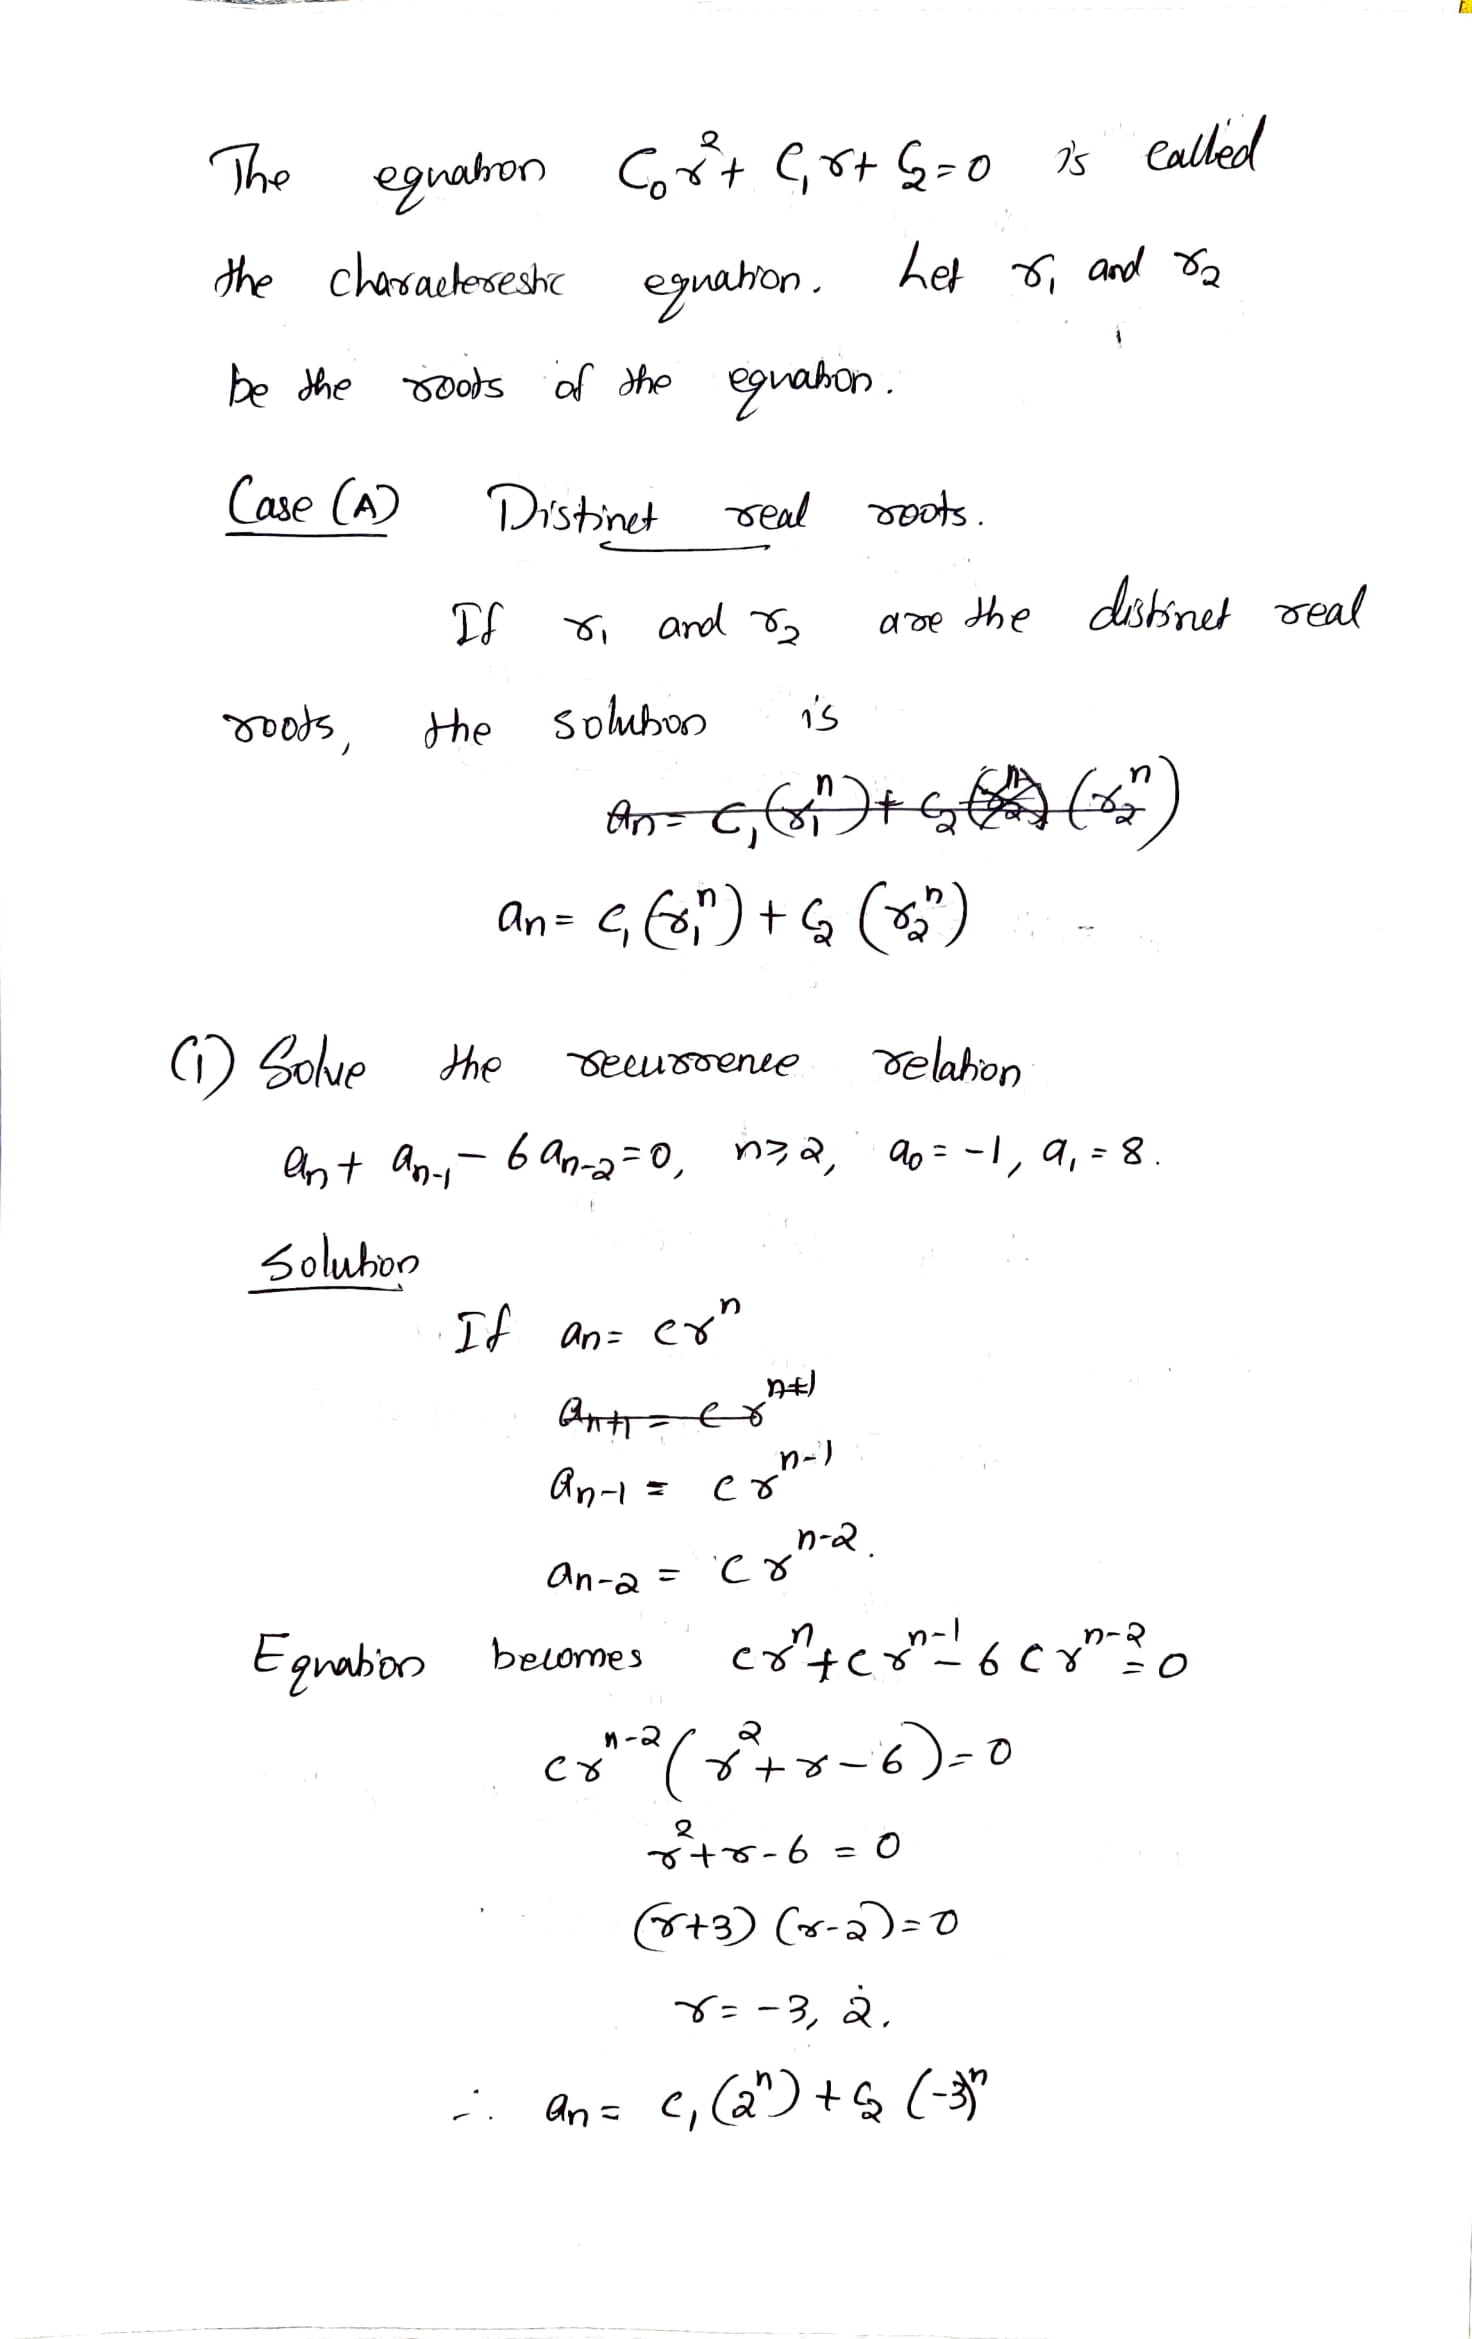 The equation C₀r² + C₁r + C₂ = 0 is called
the characterestic equation. Let r₁ and r₂
be the roots of the equation.
Case (A) Distinct real roots.
If r₁ and r₂ are the distinct real
roots, the solution is
an = C₁(r₁ⁿ) + C₂ (r₂ⁿ)
an = C₁(r₁ⁿ) + C₂ (r₂ⁿ)
(1) Solve the recurrence relation
an + an-1 - 6an-2 = 0, n ≥ 2, a₀ = -1, a₁ = 8.
Solution
If an = crⁿ
an+1 = crⁿ⁺¹
an-1 = crⁿ⁻¹
an-2 = crⁿ⁻².
Equation becomes crⁿ + crⁿ⁻¹ - 6crⁿ⁻² = 0
crⁿ⁻²(r² + r - 6) = 0
r² + r - 6 = 0
(r+3) (r-2) = 0
r = -3, 2.
∴ an = C₁(2ⁿ) + C₂ (-3)ⁿ